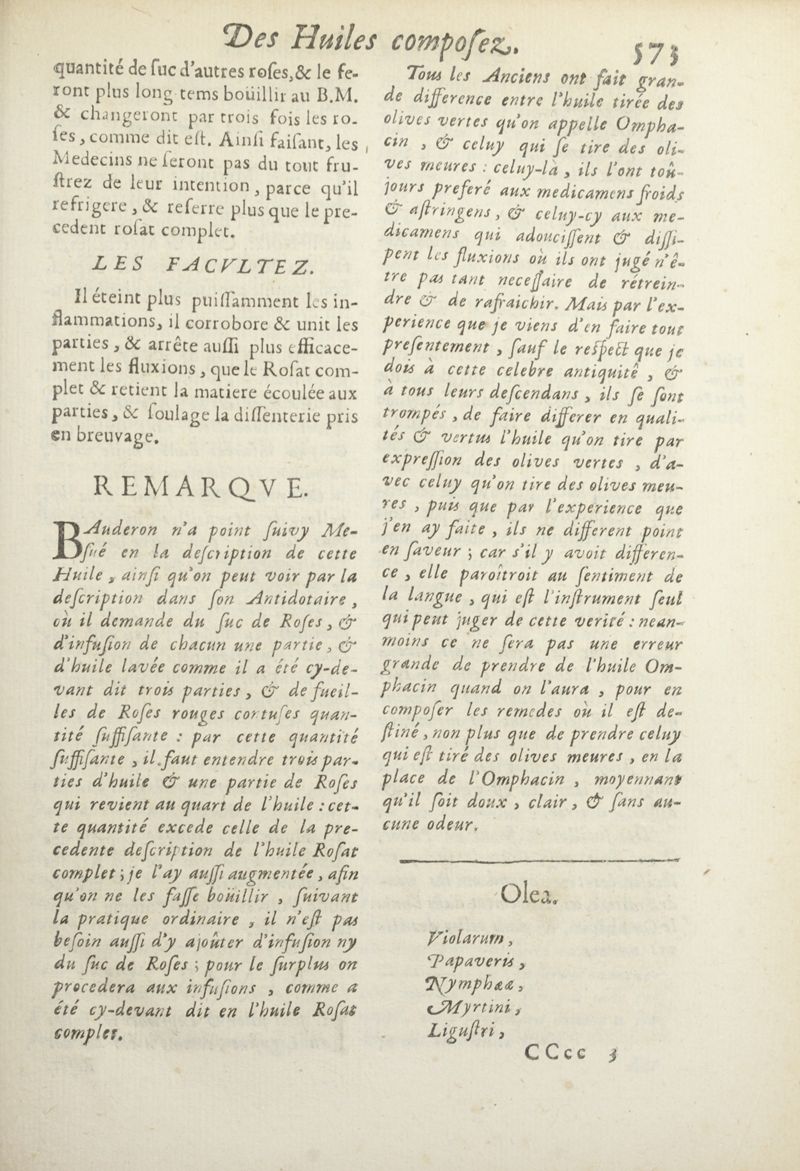 Des Huiles composez. 573
quantité de suc d'autres roses,& le fe-
ront plus long-tems boüillir au B.M.
& changeront par trois fois les ro-
ses, comme dit est. Ainsi faisant, les
Medecins ne seront pas du tout fru-
strez de leur intention, parce qu'il
refrigere, & referre plus que le pre-
cedent rosat complet.
LES FACVLTEZ.
Il éteint plus puissamment les in-
flammations, il corrobore & unit les
parties, & arrête aussi plus efficace-
ment les fluxions, que le Rosat com-
plet & retient la matiere écoulée aux
parties, & soulage la dissenterie pris
en breuvage.
REMARQVE.
BAuderon n'a point suivy Me-
sué en la description de cette
Huile, ainsi qu'on peut voir par la
description dans son Antidotaire,
où il demande du suc de Roses, &
d'infusion de chacun une partie, &
d'huile lavée comme il a été cy-de-
vant dit trois parties, & de fueil-
les de Roses rouges contuses quan-
tité suffisante : par cette quantité
suffisante, il faut entendre trois par-
ties d'huile & une partie de Roses
qui revient au quart de l'huile : cet-
te quantité excede celle de la pre-
cedente description de l'huile Rosat
complet ; je l'ay aussi augmentée, afin
qu'on ne les fasse boüillir, suivant
la pratique ordinaire, il n'est pas
besoin aussi d'y ajoûter d'infusion ny
du suc de Roses ; pour le surplus on
procedera aux infusions, comme a
été cy-devant dit en l'huile Rosat
complet.
Tous les Anciens ont fait gran-
de difference entre l'huile tirée des
olives vertes qu'on appelle Ompha-
cin, & celuy qui se tire des oli-
ves meures : celuy-là, ils l'ont toû-
jours preferé aux medicamens froids
& astringens, & celuy-cy aux me-
dicamens qui adoucissent & dissi-
pent les fluxions où ils ont jugé n'ê-
tre pas tant necessaire de rétrein-
dre & de rafraichir. Mais par l'ex-
perience que je viens d'en faire tout
presentement, sauf le respect que je
dois à cette celebre antiquité, &
à tous leurs descendans, ils se sont
trompés, de faire differer en quali-
tés & vertus l'huile qu'on tire par
expression des olives vertes, d'a-
vec celuy qu'on tire des olives meu-
res, puis que par l'experience que
j'en ay faite, ils ne different point
en saveur ; car s'il y avoit differen-
ce, elle paroîtroit au sentiment de
la langue, qui est l'instrument seul
qui peut juger de cette verité : nean-
moins ce ne sera pas une erreur
grande de prendre de l'huile Om-
phacin quand on l'aura, pour en
composer les remedes où il est de-
stiné, non plus que de prendre celuy
qui est tiré des olives meures, en la
place de l'Omphacin, moyennant
qu'il soit doux, clair, & sans au-
cune odeur.
Olea.
Violarum,
Papaveris,
Nymphææ,
Myrtini,
Ligustri,
CCcc 3